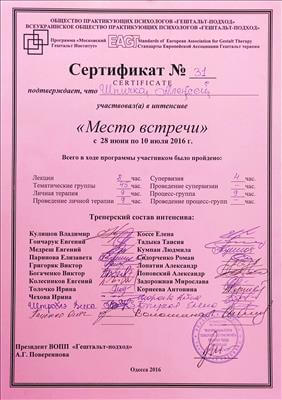 ОБЩЕСТВО ПРАКТИКУЮЩИХ ПСИХОЛОГОВ «ГЕШТАЛЬТ-ПОДХОД»
ВСЕУКРАИНСКОЕ ОБЩЕСТВО ПРАКТИКУЮЩИХ ПСИХОЛОГОВ «ГЕШТАЛЬТ-ПОДХОД»
Программа «Московский Гештальт Институт»
EAGT
Standards of European Association for Gestalt Therapy
Стандарты Европейской Ассоциации Гештальт терапии
Сертификат № 31
CERTIFICATE
подтверждает, что
участвовал(а) в интенсиве
«Место встречи»
с 28 июня по 10 июля 2016 г.
Всего в ходе программы участником было пройдено:
Лекции 8 час. Супервизия 4 час.
Тематические группы час. Проведение супервизии - час.
Личная терапия 9 час. Процесс-группа час.
Проведение личной терапии 9 час. Проведение процесс-групп - час.
Тренерский состав интенсива:
Кулишов Владимир Коссе Елена
Гончарук Евгений Гадьяа Таисия
Медреш Евгений Кумпан Людмила
Паринова Елизавета Сидорченко Роман
Григоряк Виктор Лопатин Александр
Богаченко Виктор Поповский Александр
Колесников Евгений Задорожная Мирослава
Толочко Ирина Корнеева Антонина
Чехова Ирина
Президент ВОПП «Гештальт-подход»
А.Г. Поверенова
Одесса 2016